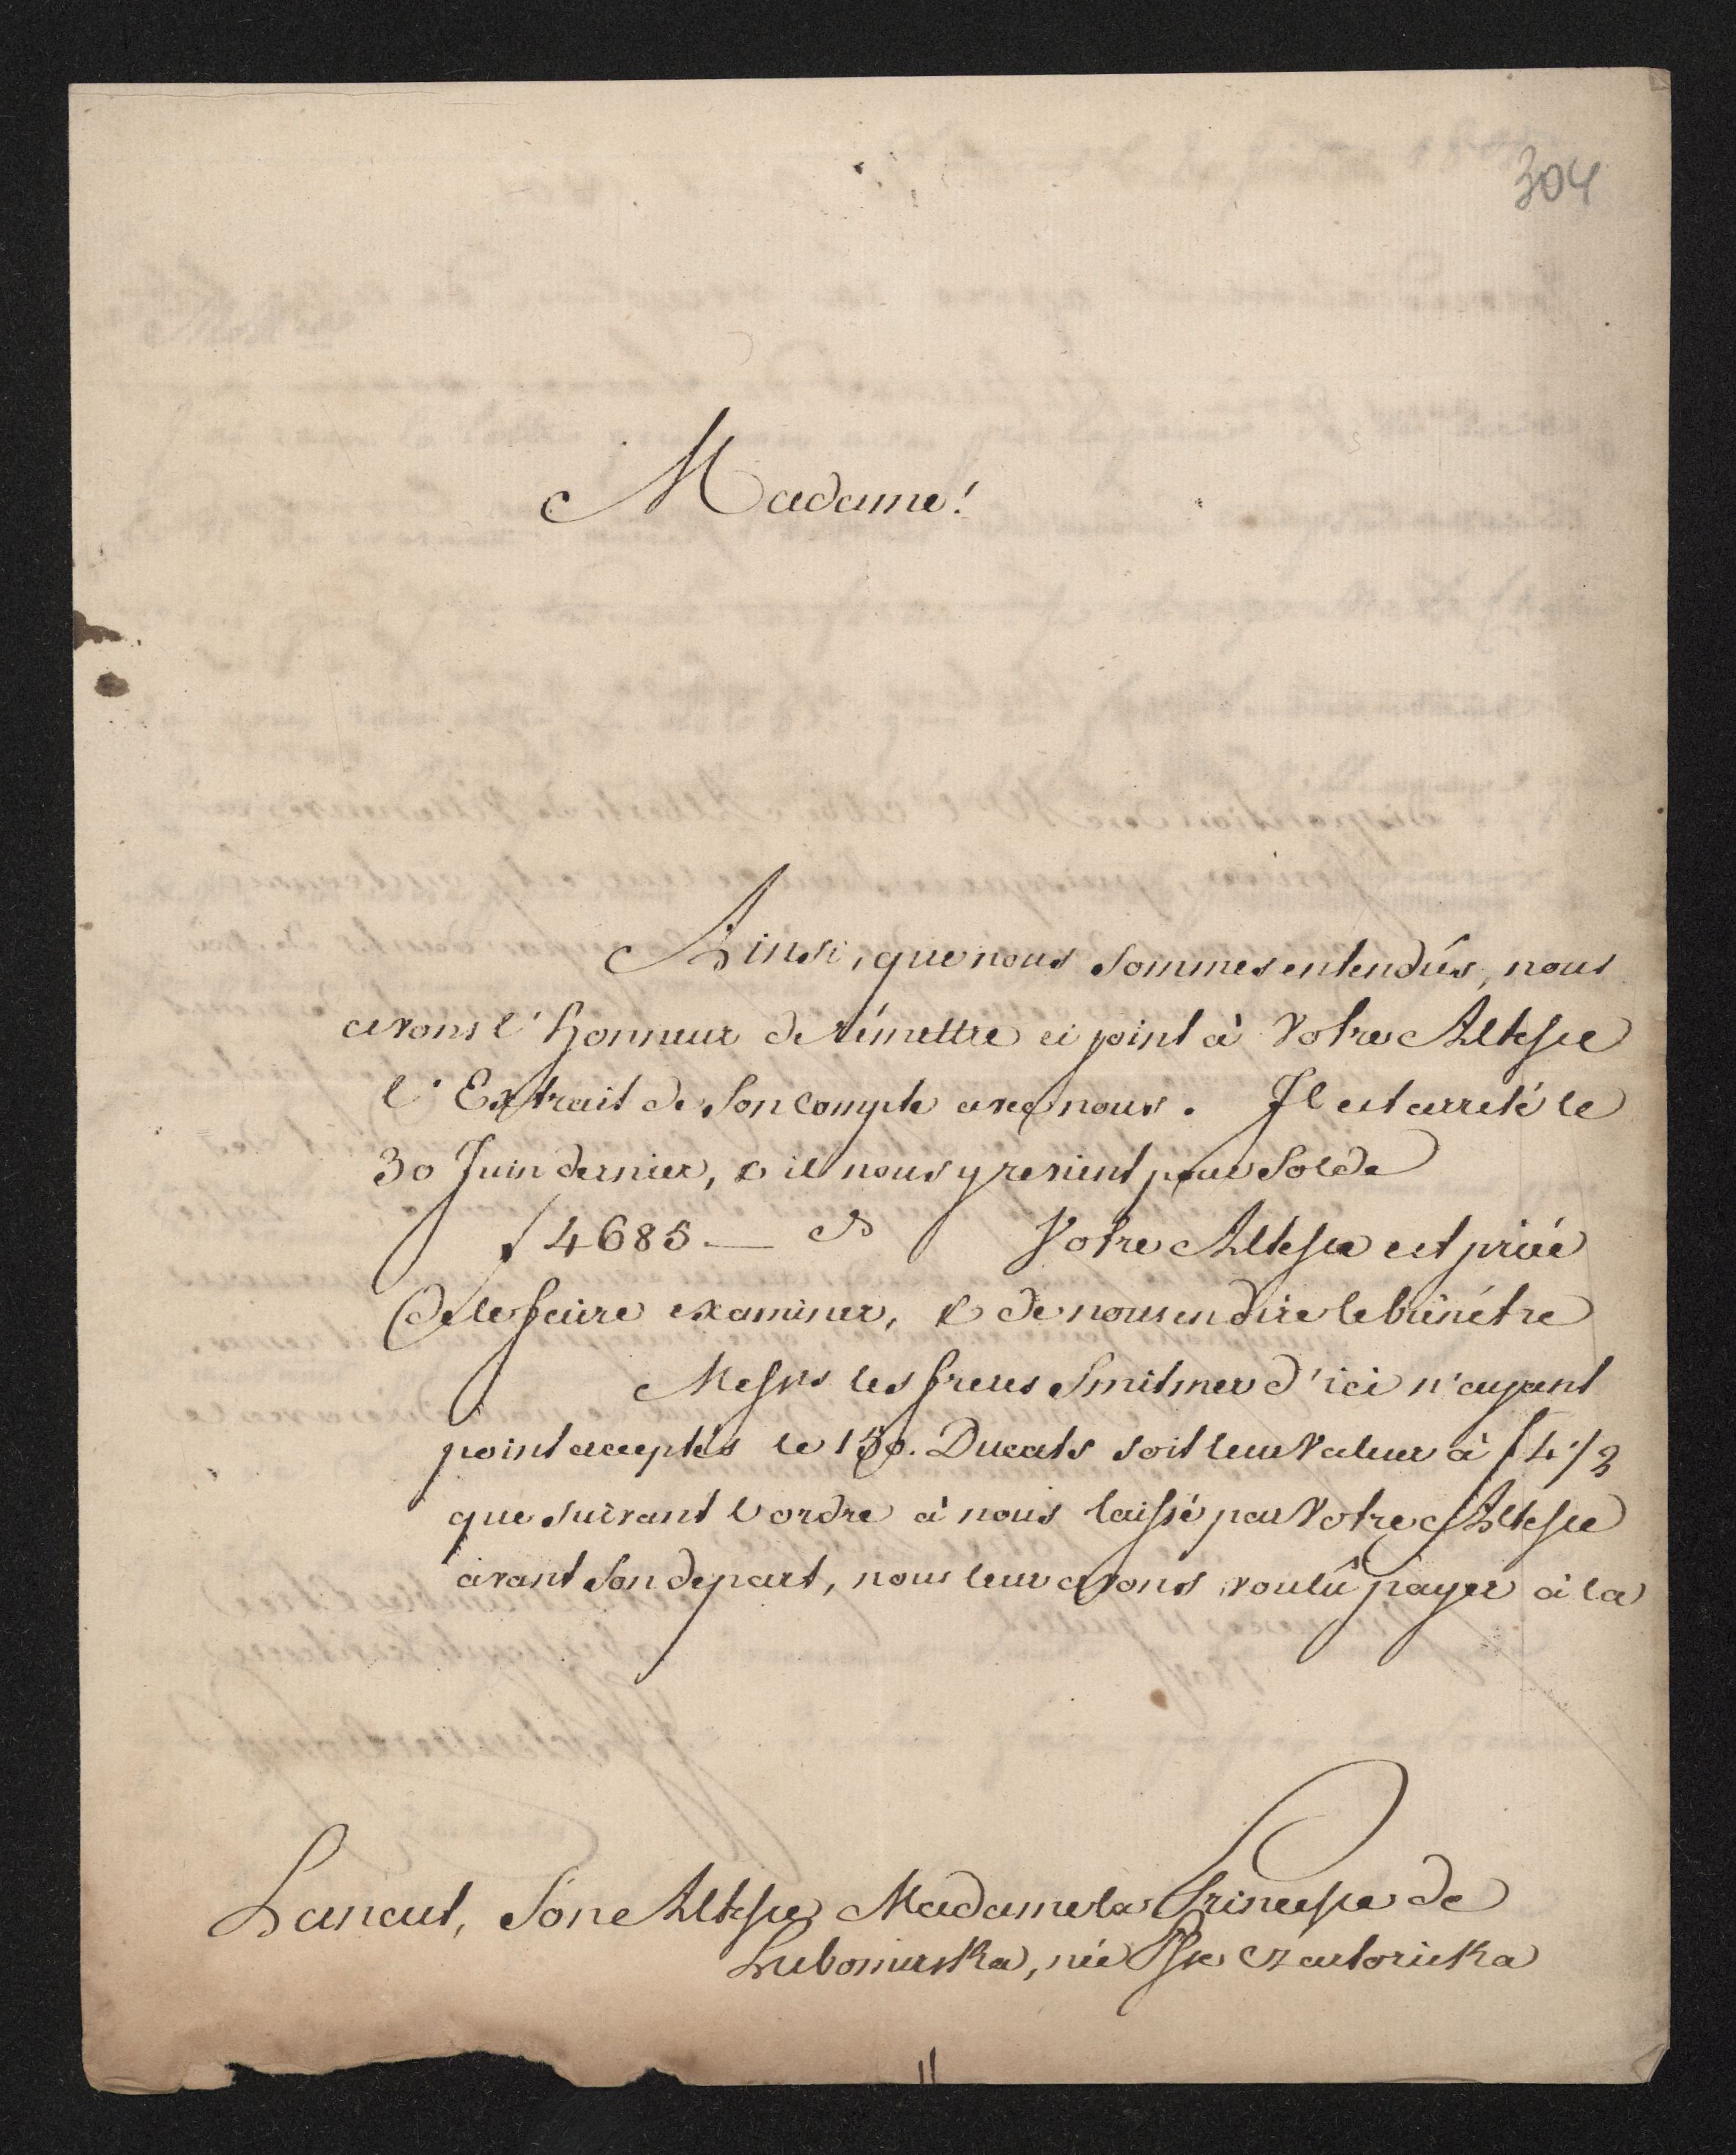 304
Madame!
Ainsi, que nous sommes entendús, nous
avons l'honneur de rémettre ci joint à Votre Altesse
l'Extrait de Son Compte avec nous. Il est arreté le
30 Juin dernier, & il nous y revient pour Solde
f 4685 —
Votre Altesse est priée
de le faire examiner, & de nous en dire le bienêtre
Messrs les freres Smitmer d'ici n'ayant
point acceptés le 150. Ducats soit leur Valeur à f 4 1/2
que suivant l'ordre à nous laissé par Votre Altesse
avant Son depart, nous leur avons voulû payer à la
Lancut, Son Altesse Madame la Princesse de
Lubomirska, née Psse Czartoriska